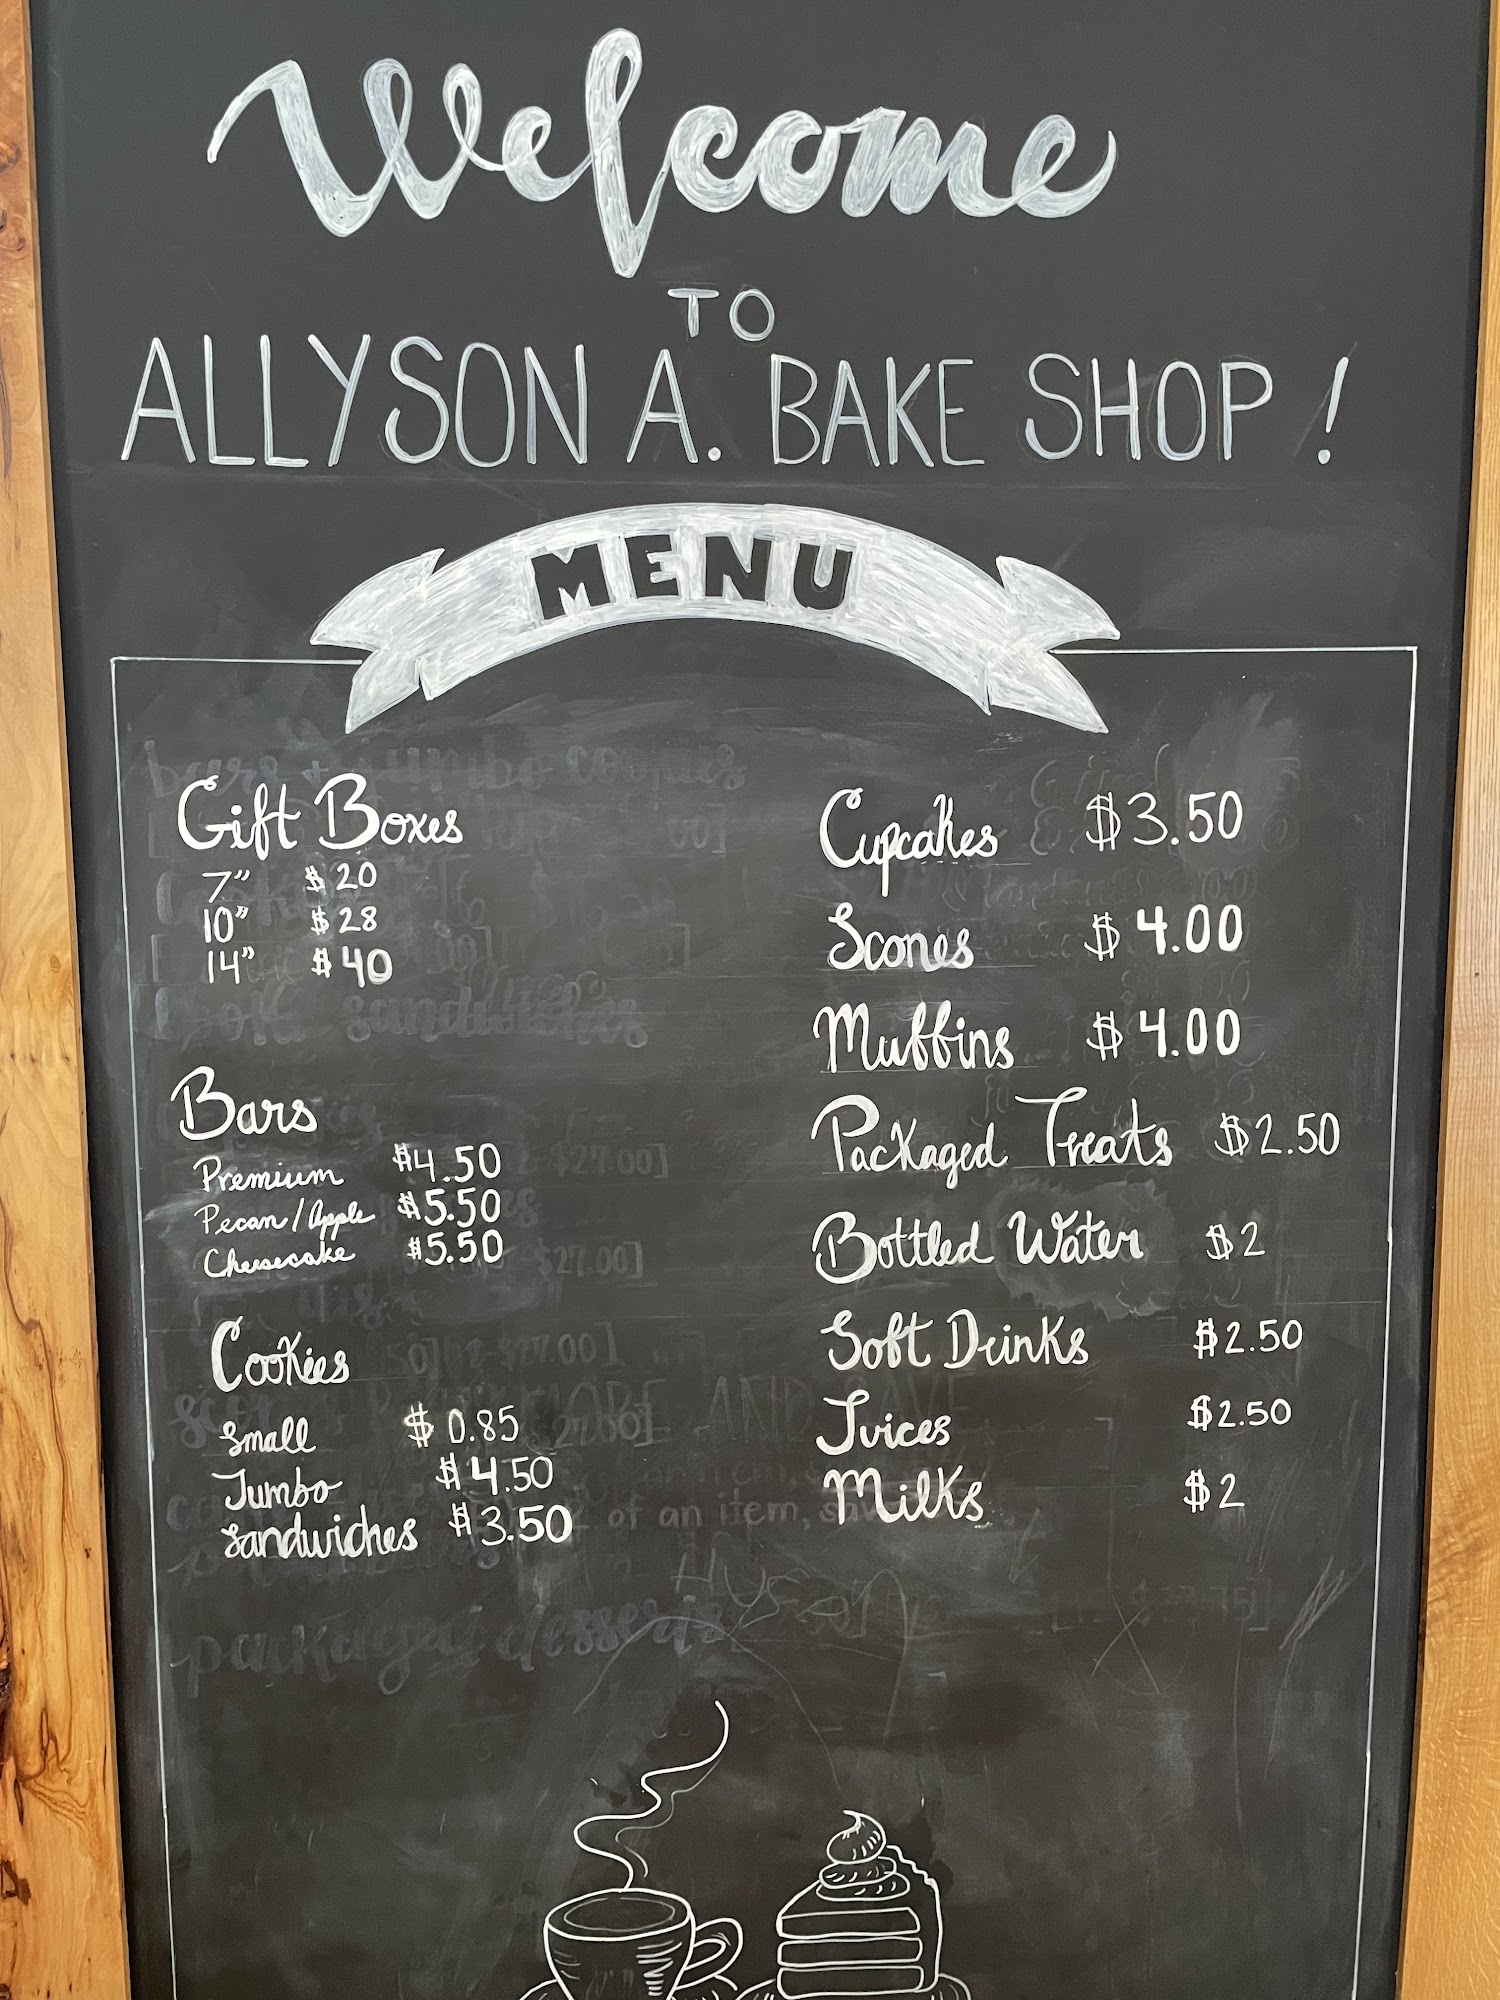 Welcome
TO
ALLYSON A. BAKE SHOP!
MENU
Gift Boxes
7" $20
10" $28
14" $40
Bars
Premium $4.50
Pecan/Apple $5.50
Cheesecake $5.50
Cookies
Small $0.85
Jumbo $4.50
Sandwiches $3.50
Cupcakes $3.50
Scones $4.00
Muffins $4.00
Packaged Treats $2.50
Bottled Water $2
Soft Drinks $2.50
Juices $2.50
Milks $2